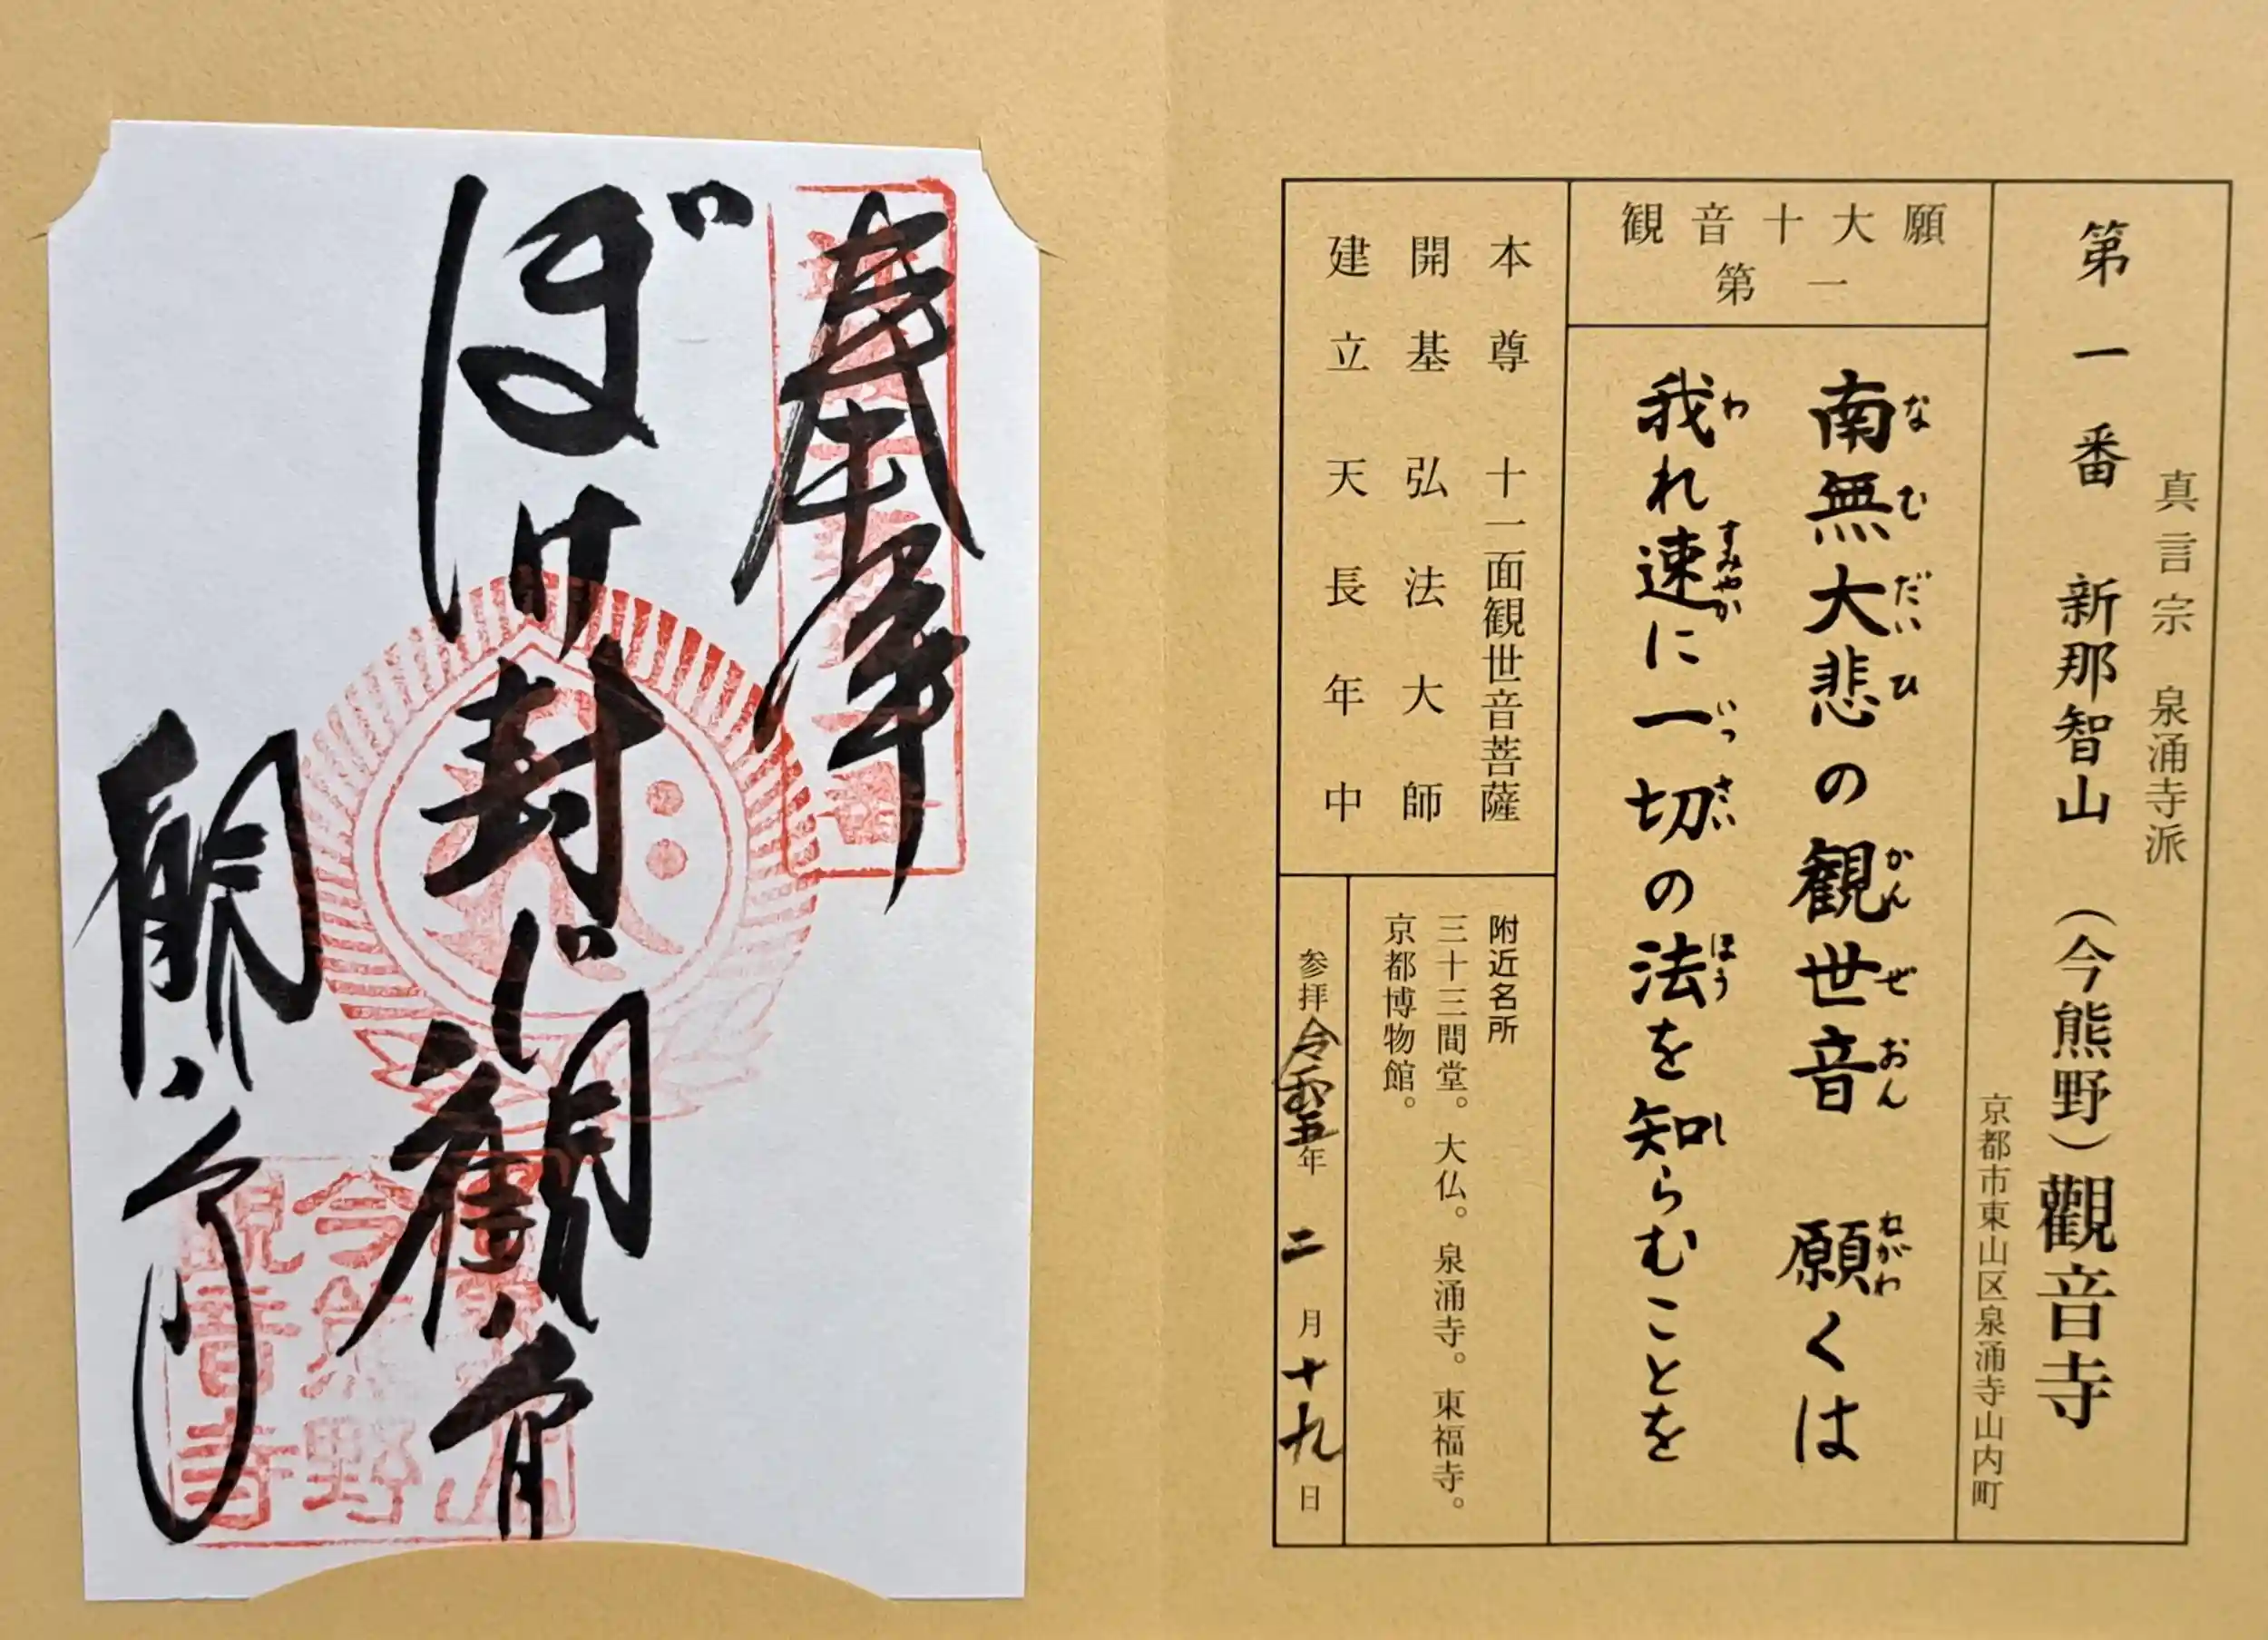 真言宗 泉涌寺派
第一番 新那智山 (今熊野) 觀音寺
京都市東山区泉涌寺山内町
観音十大願
第一
南無大悲の観世音 願くは
なむだいひ かんぜおん ねがわ
我れ速に一切の法を知らむことを
わ すみやか いっさい ほう し
本尊 十一面観世音菩薩
開基 弘法大師
建立 天長年中
附近名所
三十三間堂。大仏。泉涌寺。東福寺。
京都博物館。
参拝令和五年二月十九日
奉拝
ぼけ封じ観音
観音寺
今熊野